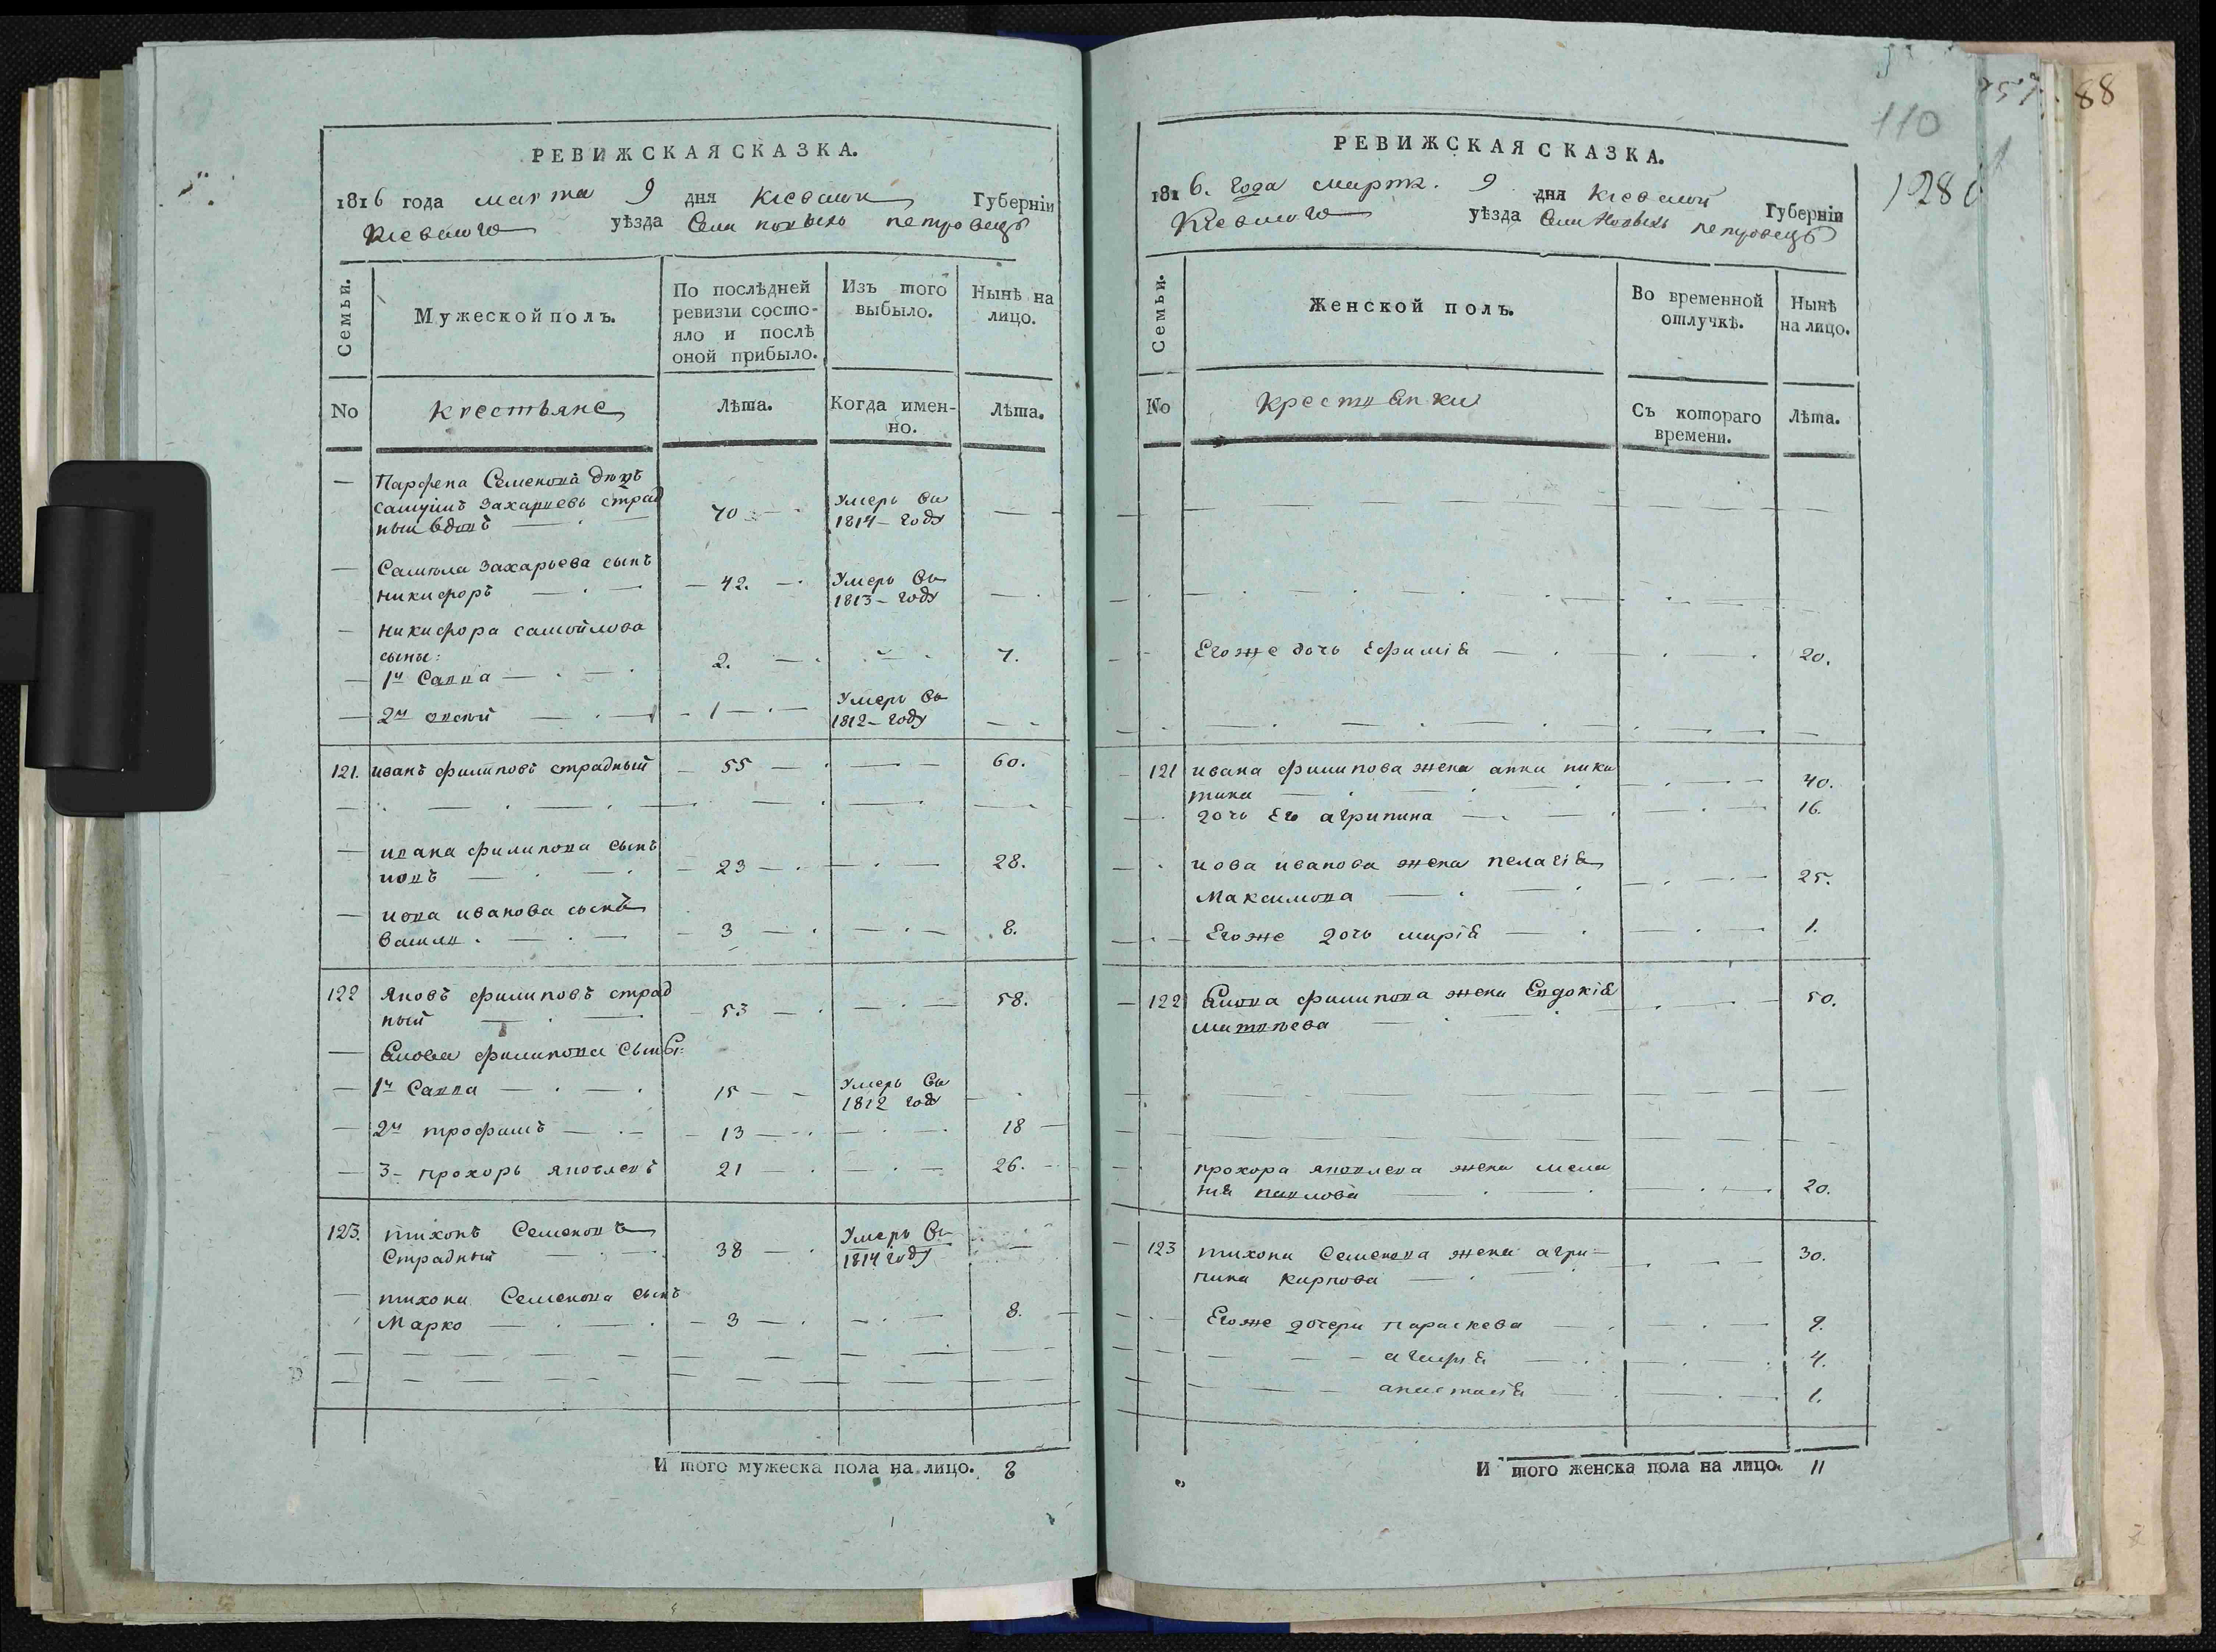 РЕВИЖСКАЯ СКАЗКА.
1816 года марта 9 дня Кіевской Губерніи
Кіевского уѣзда Села новыхъ петровецъ
Семьи.
Мужеской полъ.
По послѣдней
ревизіи состо-
яло и послѣ
оной прибыло.
Изъ того
выбыло.
Нынѣ на
лицо.
No крестьяне Лѣта. Когда имен-
но.
Лѣта.
— Парфена Семенова дядя
захариевъ страд
ный вдовъ — 70 — умеръ въ
1814 – году — —
— Самойла Захарьева сынъ
никифоръ — . — — 42. — . умеръ въ
1813 – году — .
— никифора самойлова
сыны:
— 1й Савва — . — . 2. — . . — . 7.
— 2й — . — - 1 — . — умеръ въ
1812 – году — -
121. иванъ филиповъ страдный — 55 — . — — 60.
— ивана филипова сынъ
иовъ — . — . — 23 — . — . — 28.
— иова иванова сынъ
василь . — . — — 3 — . — . — 8.
122 яковъ филиповъ страд
ный — . — — 53 — . — . — 58.
— Якова филипова сыны:
— 1й Савва — . — . 15 — - умеръ въ
1812 году — .
— 2й трофимъ — . — — 13 — . — . — . 18 —
— 3 – прохоръ яковлевъ 21 — . — . — 26. -
123. тихонъ Семеновъ
Страдный — . — . 38 — . умеръ въ
1814 году —
— тихона Семенова сынъ
марко — . — . — 3 — . — . — 8. —
И того мужеска пола на лицо. 8
РЕВИЖСКАЯ СКАЗКА.
1816. года марта. 9 дня Кіевской Губерніи
Кіевского уѣзда Села Новыхъ петровецъ
Семьи.
Женской полъ.
Во временной
отлучкѣ.
Нынѣ
на лицо.
No крестьянки Съ котораго
времени.
Лѣта.
Его же дочь Ефимія — . — . . 20.
— 121 ивана филипова жена анна ники
тина — . — . — . — . — 40.
дочь Его агрипина — . — . — . — 16.
— . иова иванова жена пелагія
Максимова — . — . — . — . — 25.
— . — Его же дочь марія — . — . — 1.
— 122 Якова филипова жена Евдокія
матвѣева — . — . — . — 50.
прохора яковлева жена мела
нія павлова — . — . — . — . 20.
— 123 тихона Семенова жена агри-
пина карпова — . — . — — 30.
— . — Его же дочери параскева — . — . — 9.
— — — агафія — . — . — . 4.
— — — анастасія — . — . — 1.
И того женска пола на лицо. 11
110
128
88